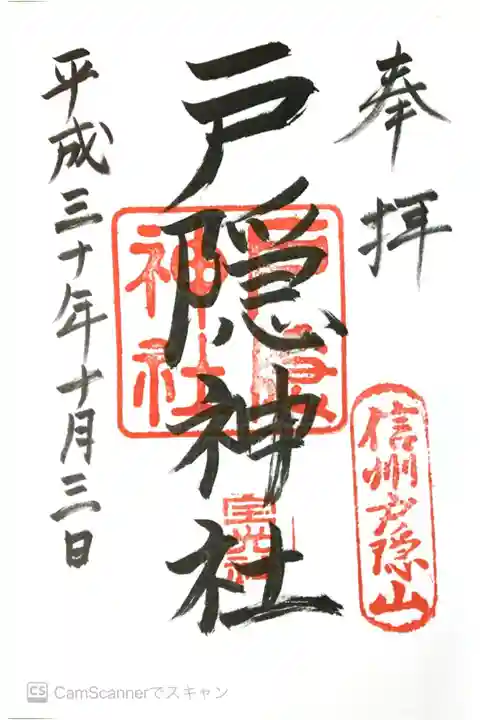 奉拝
信州戸隠山
戸隠神社
宝光社
平成三十年十月三日
CS CamScannerでスキャン